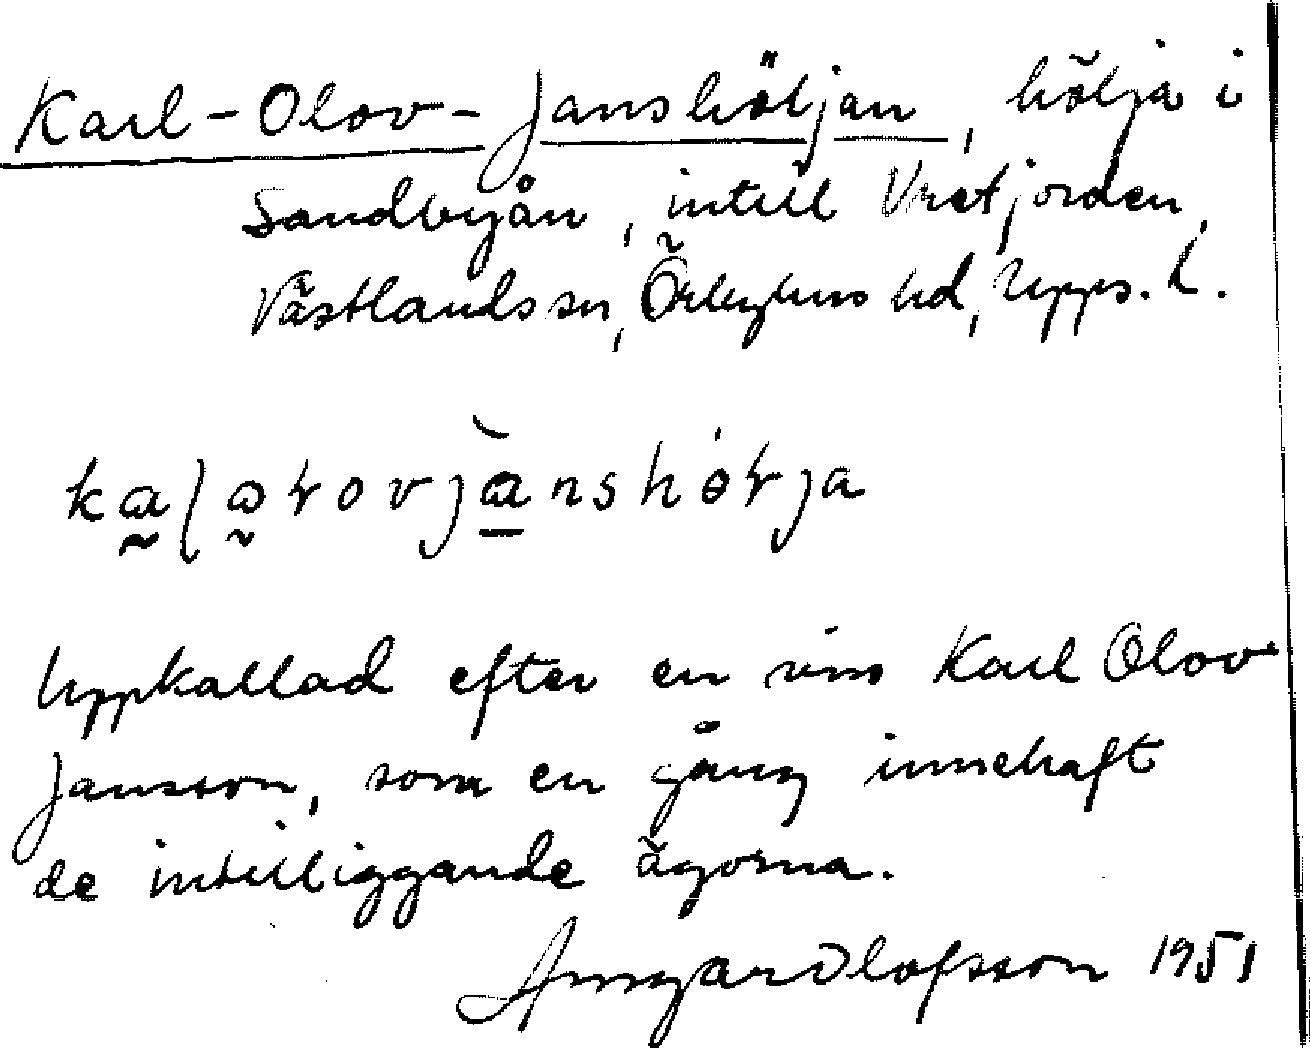 Karl-Olov-Janshöljan, hölja i
Sandbyån, intill Vretjorden,
Västlands sn, Örbyhus hd, Upps. l.
Uppkallad efter en viss Karl Olov
Jansson, som en gång innehaft
de intilliggande ägorna.
Olofsson 1951